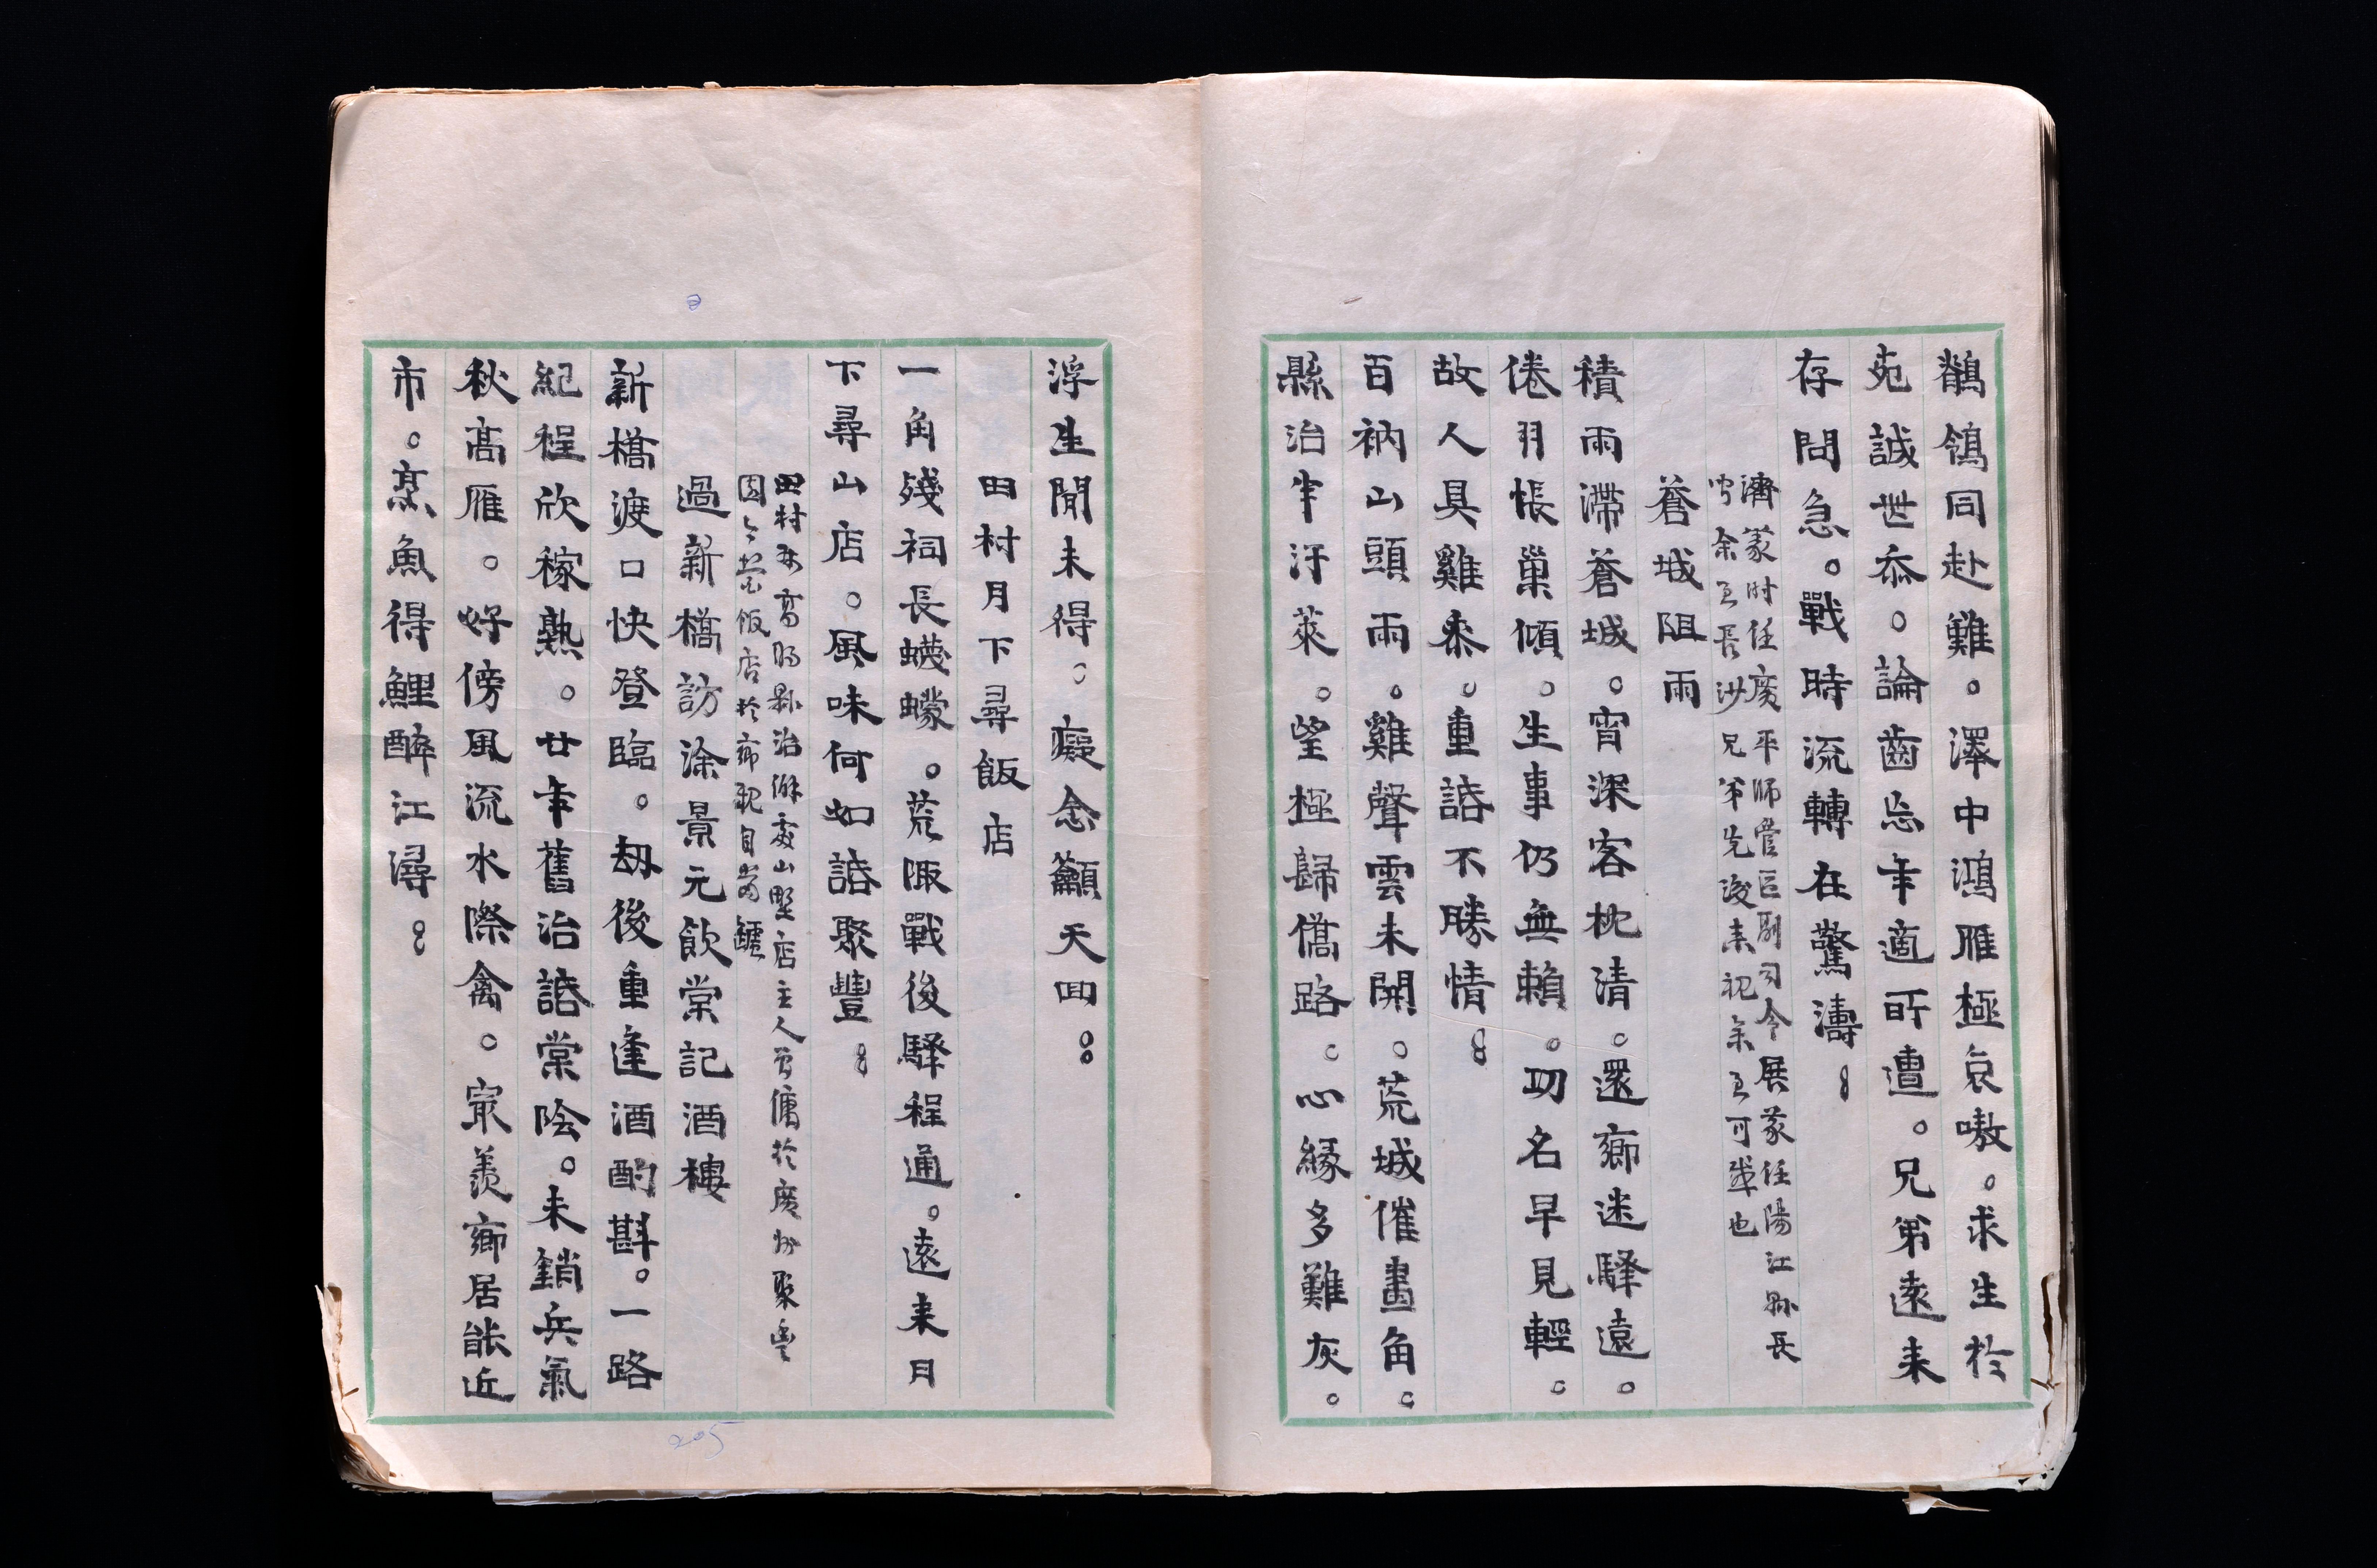 鶺鴒同赴難。澤中鴻雁極哀嗷。求生於
苑誠世忝。論齒忘年適所遭。兄弟遠来
存問急。戰時流轉在驚濤。
濟蒙时任廣平师管区副司令展蒙任陽江縣長
余至長沙兄弟先後来視余至可感也
蒼城阻雨
積雨滯蒼城。宵深客枕清。還鄉迷驛遠。
倦羽悵巢傾。生事仍無賴。功名早見輕。
故人具雞黍。重話不勝情。
百衲山頭雨。雞聲雲未開。荒城催畫角。
縣治半汙萊。望極歸僑路。心緣多難灰。
浮生閒未得。癡念籲天回。
田村月下尋飯店
一角殘祠長蠛蠓。荒陬戰後驛程通。遠来月
下尋山店。風味何如話聚豐。
田村為高明縣治僻處山墅店主人曾傭於廣州聚豐
園今營飯店於鄉親自當鑪
過新橋訪涂景元飲棠記酒樓
新橋渡口快登臨。劫後重逢酒酌斟。一路
紀程欣稼熟。廿年舊治話棠陰。未銷兵氣
秋高雁。好傍風流水際禽。㝡羡鄉居能近
市。烹魚得鯉醉江潯。
205